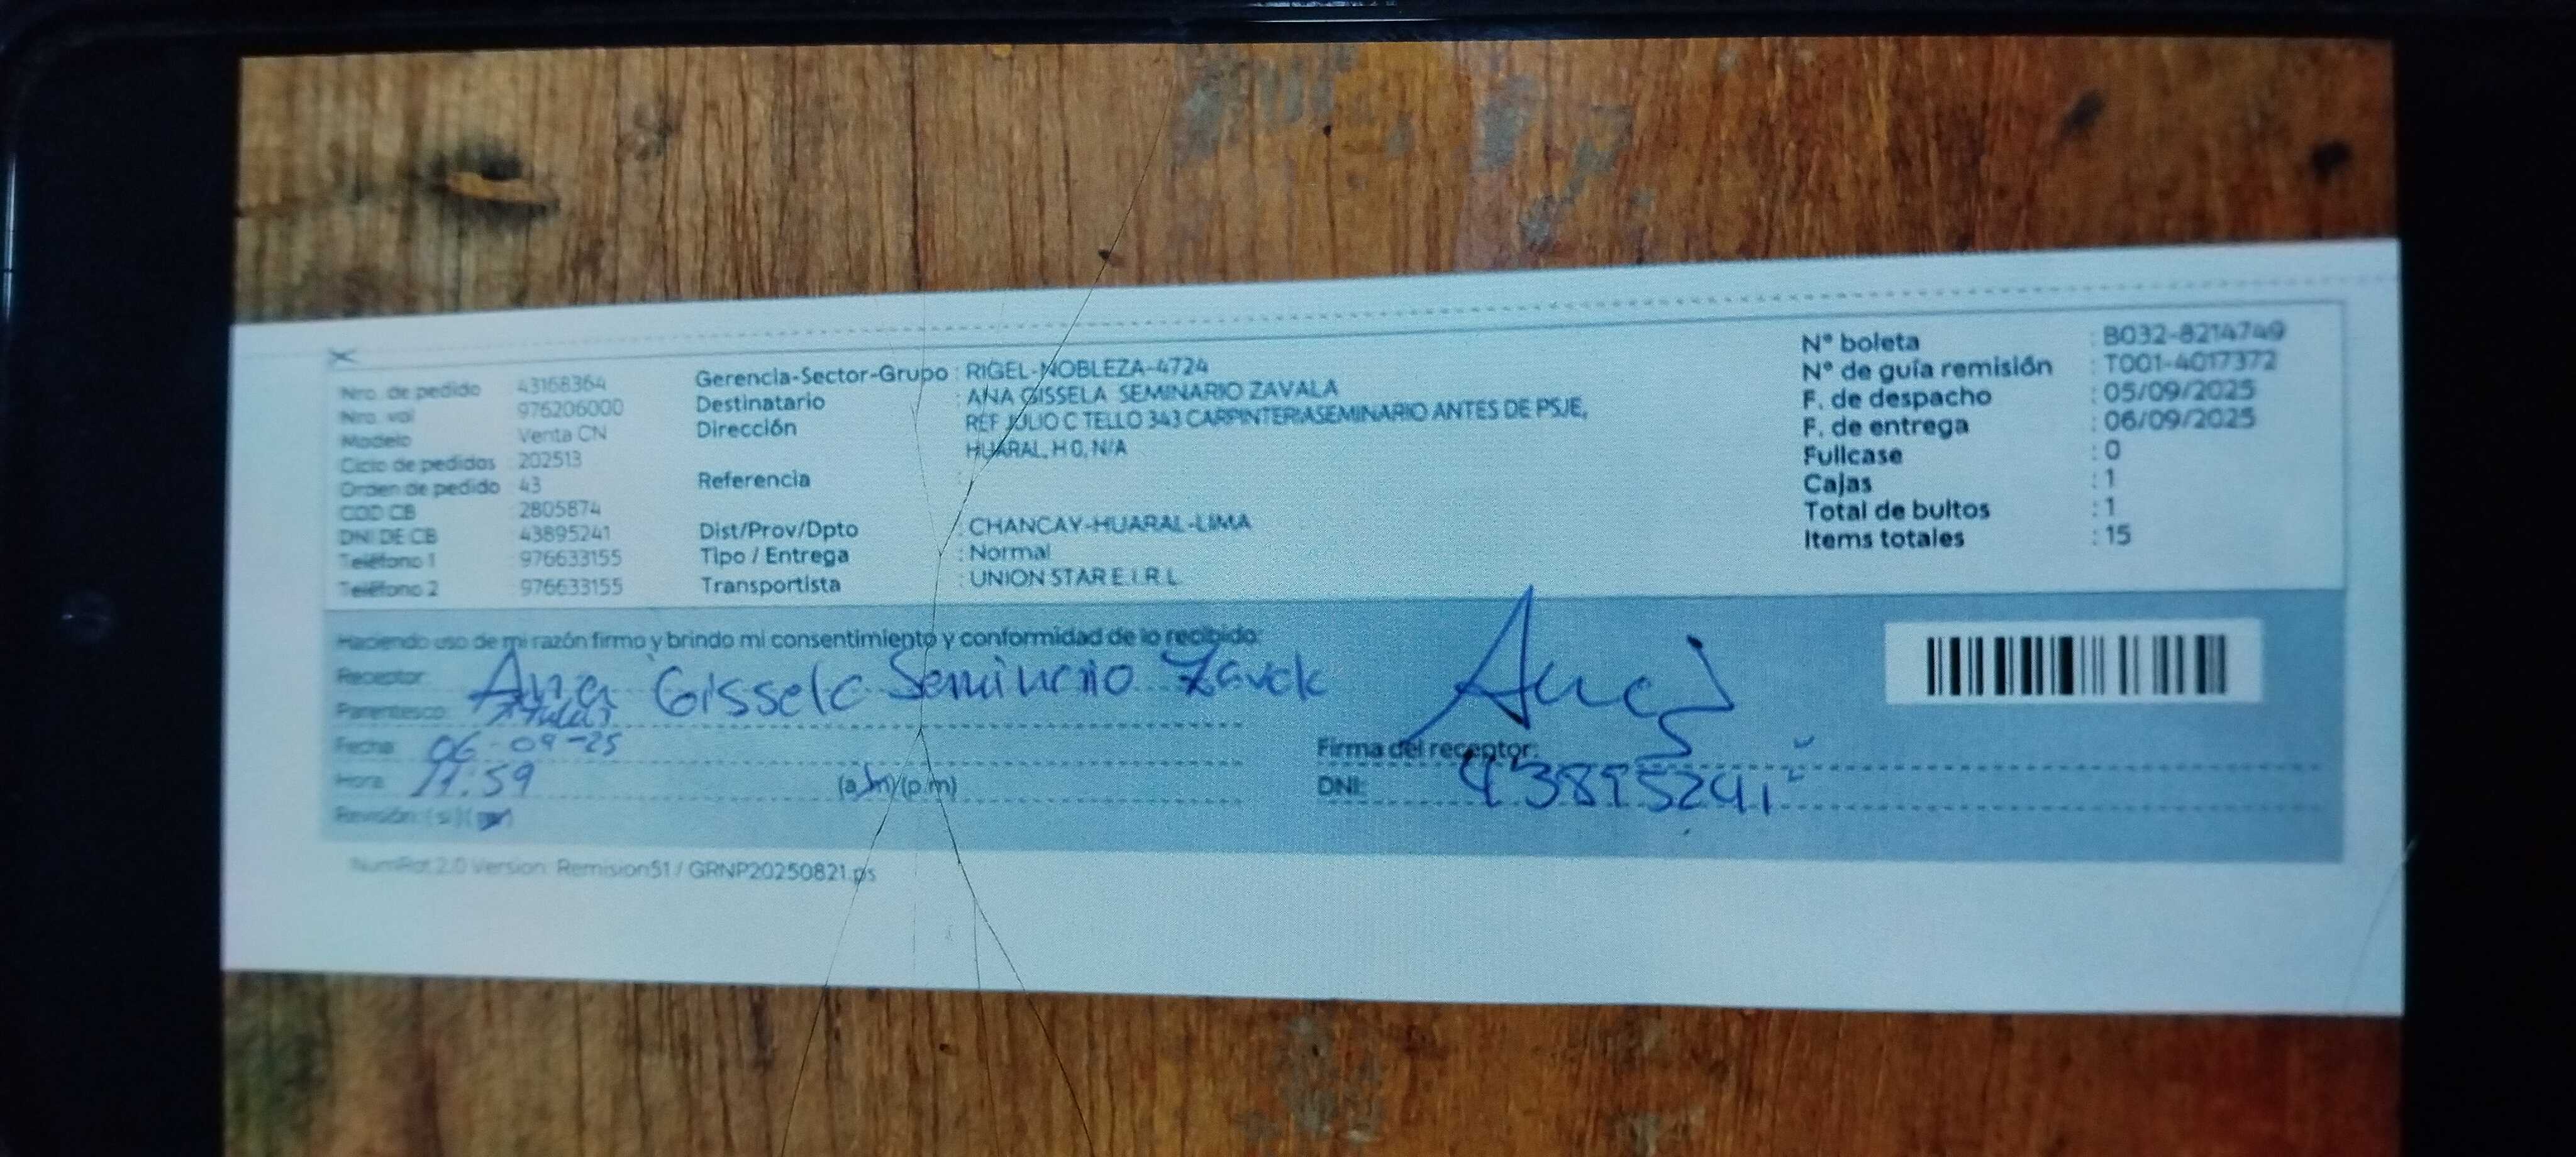 Nro. de pedido 43168364
Nro. vol 976206000
Modelo Venta CN
Ciclo de pedidos : 202513
Orden de pedido : 43
COD CB : 2805874
DNI DE CB : 43895241
Teléfono 1 : 976633155
Teléfono 2 : 976633155
Gerencia-Sector-Grupo : RIGEL-NOBLEZA-4724
Destinatario : ANA GISSELA SEMINARIO ZAVALA
Dirección REF JULIO C TELLO 343 CARPINTERIASEMINARIO ANTES DE PSJE,
HUARAL, H 0, N/A
Referencia :
Dist/Prov/Dpto : CHANCAY-HUARAL-LIMA
Tipo / Entrega : Normal
Transportista : UNION STAR E.I.R.L.
N° boleta : B032-8214749
N° de guía remisión : T001-4017372
F. de despacho : 05/09/2025
F. de entrega : 06/09/2025
Fullcase : 0
Cajas : 1
Total de bultos : 1
Items totales : 15
Haciendo uso de mi razón firmo y brindo mi consentimiento y conformidad de lo recibido:
Receptor: Ana Gissela Seminario Zavala
Parentesco: titular
Fecha: 06-09-25
Hora: 11:59 (a.m)(p.m)
Revisión: (si)
Firma del receptor:
DNI: 43895241
NumRot 2.0 Version: Remision51 / GRNP20250821.ps